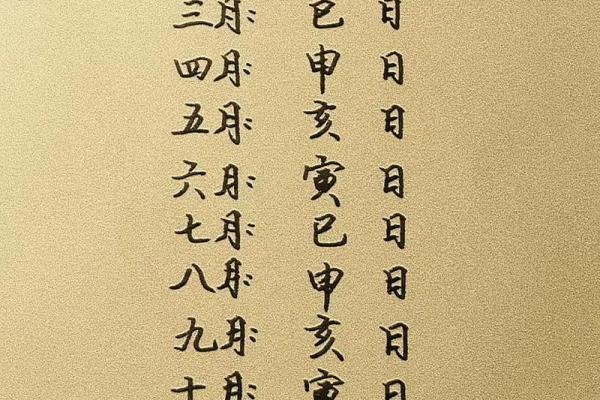 三月: 巳 日
四月: 申 日
五月: 亥 日
六月: 寅 日
七月: 巳 日
八月: 申 日
九月: 亥 日
十月: 寅 日